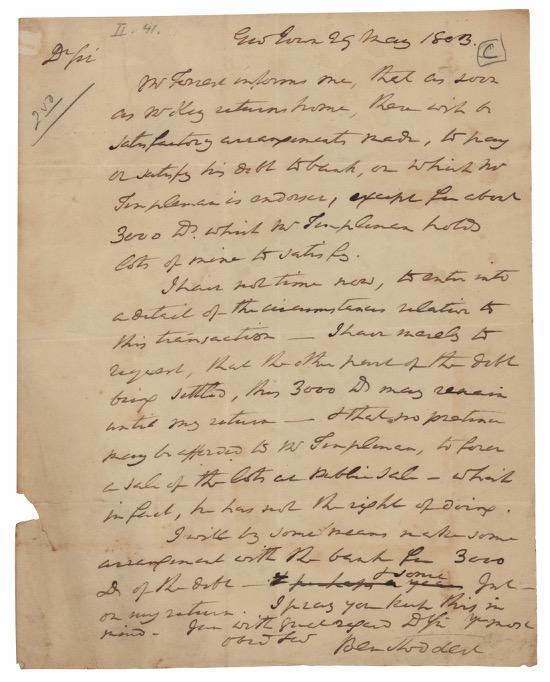 II. 41.
Geo Town 29 May 1803.
C
Dr Sir
250
Mr Forrest informs me, that as soon
as Mr Key returns home, there will be
satisfactory arrangements made, to pay
or satisfy his debt to bank, on which Mr
Templeman is endorser, except for about
3000 Ds. which Mr Templeman holds
lots of mine to satisfy.
I have not time now, to enter into
a detail of the circumstances relative to
this transaction — I have merely to
request, that the other part of the debt
being settled, this 3000 Ds may remain
until my return — & that no pretence
may be afforded to Mr Templeman, to force
a sale of the lots at Public sale — which
in fact, he has not the right of doing.
I will by some means make some
arrangement with the bank for 3000
Ds of the debt — & perhaps a year
& some
on my return. I pray you keep this in
mind. I am with great regard Dr Sir yr most
obed Ser
Ben Stoddert